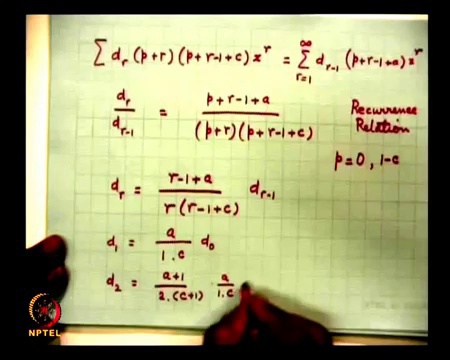 ∑ d_r (p+r)(p+r-1+c) x^r = ∑_{r=1}^{∞} d_{r-1} (p+r-1+a) x^r
d_r / d_{r-1} = (p+r-1+a) / ((p+r)(p+r-1+c))
Recurrence
Relation
p=0, 1-c
d_r = (r-1+a) / (r(r-1+c)) d_{r-1}
d_1 = a / (1.c) d_0
d_2 = (a+1) / (2.(c+1)) . a / (1.c)
NPTEL